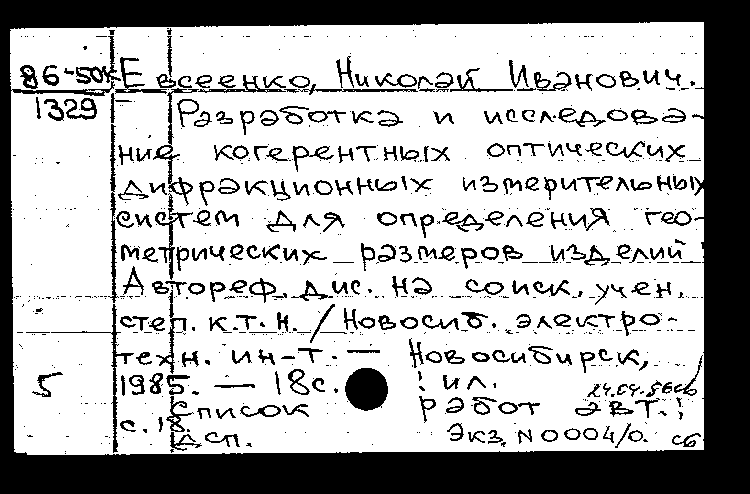 86-504 Евсеенко, Николай Иванович.
1329 Разработка и исследова-
ние когерентных оптических
дифракционных измерительных
систем для определения гео-
метрических размеров изделий:
Автореф. дис. на соиск. учен.
степ. к.т.н. / Новосиб. электро-
техн. ин-т. — Новосибирск,
5 1985. — 18с. : ил. 24.04.86сб
Список работ авт.:
с. 18.
дсп. Экз. N 0004/0. сб